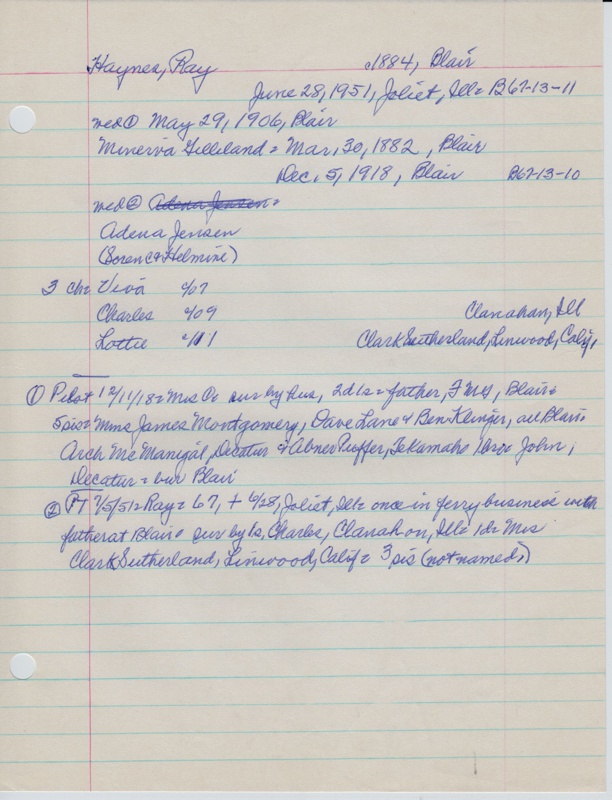 Haynes, Ray c1884, Blair
June 28, 1951, Joliet, Ill= B67-13-11
wed ① May 29, 1906, Blair
Minerva Gilliland = Mar, 30, 1882, Blair
Dec. 5, 1918, Blair B67-13-10
wed ② Adena Jensen=
Adena Jensen
(Soren & Helmine)
3 ch= Viva c/07
Charles c/09 Clanahan, Ill
Lottie c/11 Clark Sutherland, Linwood, Calif,
① Pilot 12/11/18= Mrs sur by hus, 2d 1s= father, Blair=
5 sis= Mmes James Montgomery, Dave Lane & Ben Klinger, all Blair=
Arch McManigal, Decatur & Abner Puffer, Tekamah= bro= John,
Decatur = bur Blair
② PT 7/5/51= Ray= 67, + 6/28, Joliet, Ill= once in ferry business with
father at Blair= sur by 1s, Charles, Clanahon, Ill= 1d= Mrs
Clark Sutherland, Linwood, Calif= 3 sis (not named)